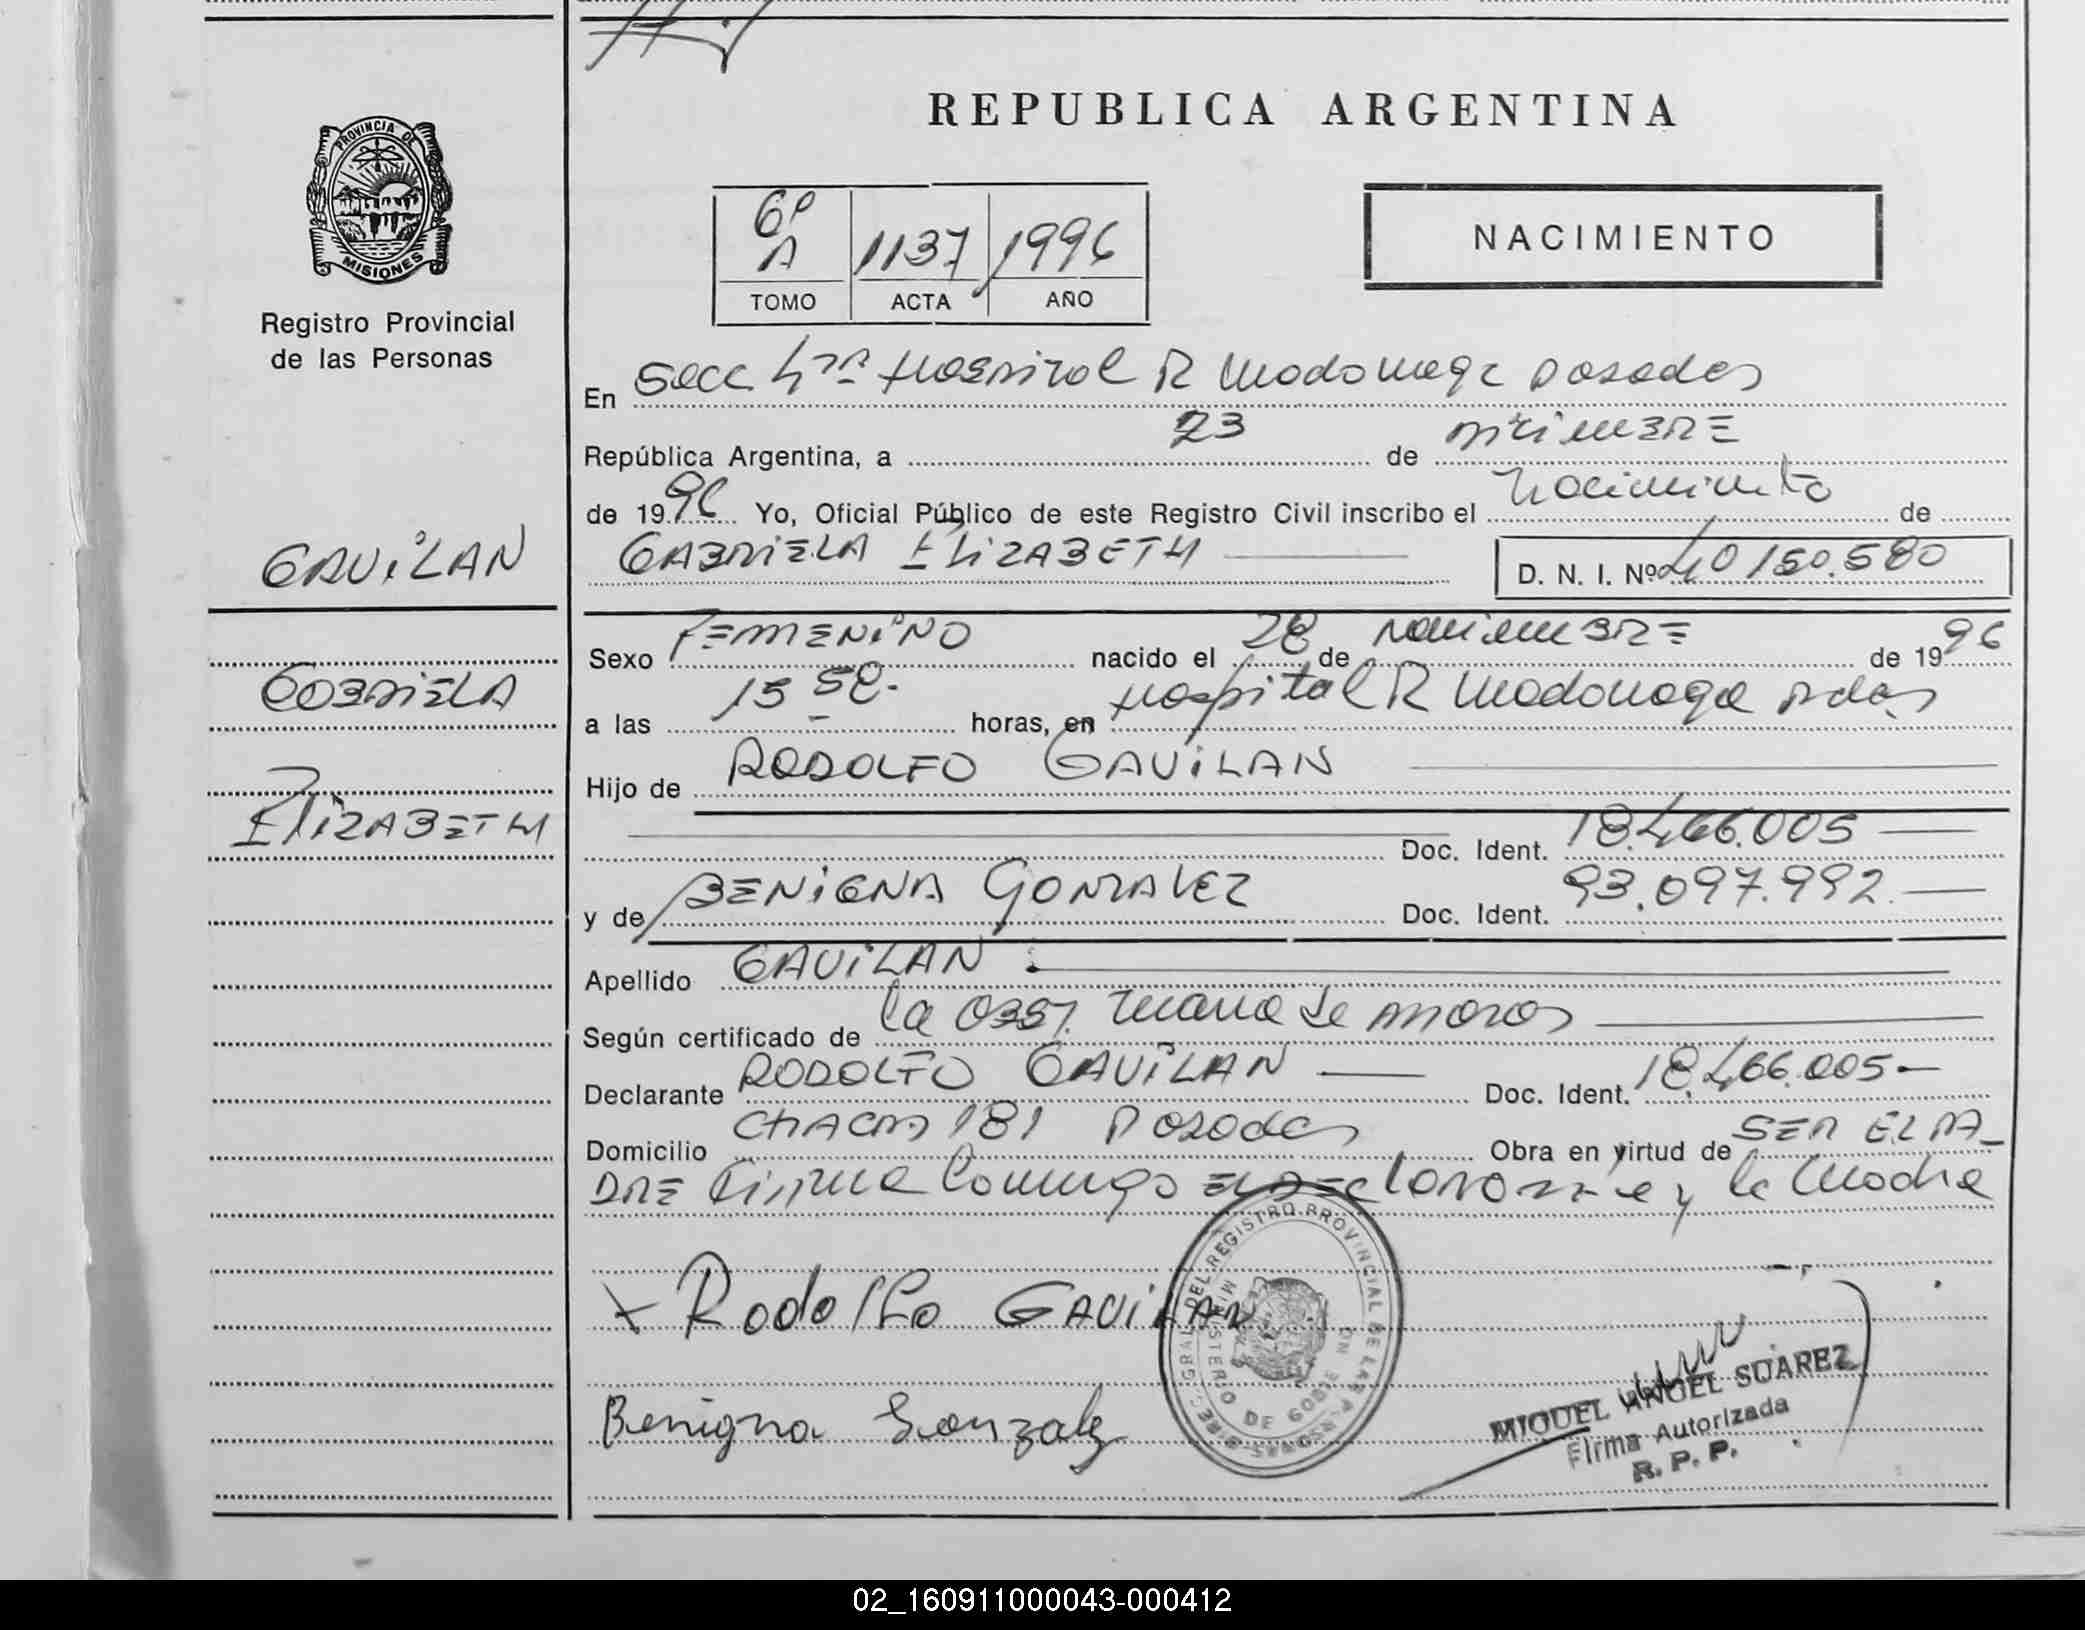 REPUBLICA ARGENTINA
PROVINCIA DE
MISIONES
Registro Provincial
de las Personas
6º
A 1137 1996
TOMO ACTA AÑO
NACIMIENTO
En Secc 4ta Hospital R Madariaga Posadas
República Argentina, a 23 de DICIEMBRE
de 1996 Yo, Oficial Público de este Registro Civil inscribo el Nacimiento de
GABRIELA ELIZABETH D. N. I. Nº 40150.580
GAVILAN
GABRIELA
ELIZABETH
Sexo FEMENINO nacido el 28 de NOVIEMBRE de 1996
a las 15 horas, en Hospital R Madariaga Pdas
Hijo de RODOLFO GAVILAN
Doc. Ident. 18.466.005
y de BENIGNA GONZALEZ Doc. Ident. 93.097.992
Apellido GAVILAN
Según certificado de la Obst. Maria de
Declarante RODOLFO GAVILAN Doc. Ident. 18.466.005
Domicilio CHACRA 181 Posadas Obra en virtud de SER EL PA_
DRE Firma Conmigo EL DEClarante y la Madre
X Rodolfo GAVILAN
Benigna Gonzalez
DIREC. GRAL. DEL REGISTRO PROVINCIAL DE LAS PERSONAS
MINISTERIO DE GOBIERNO
MIGUEL ANGEL SUAREZ
Firma Autorizada
R. P. P.
02_160911000043-000412